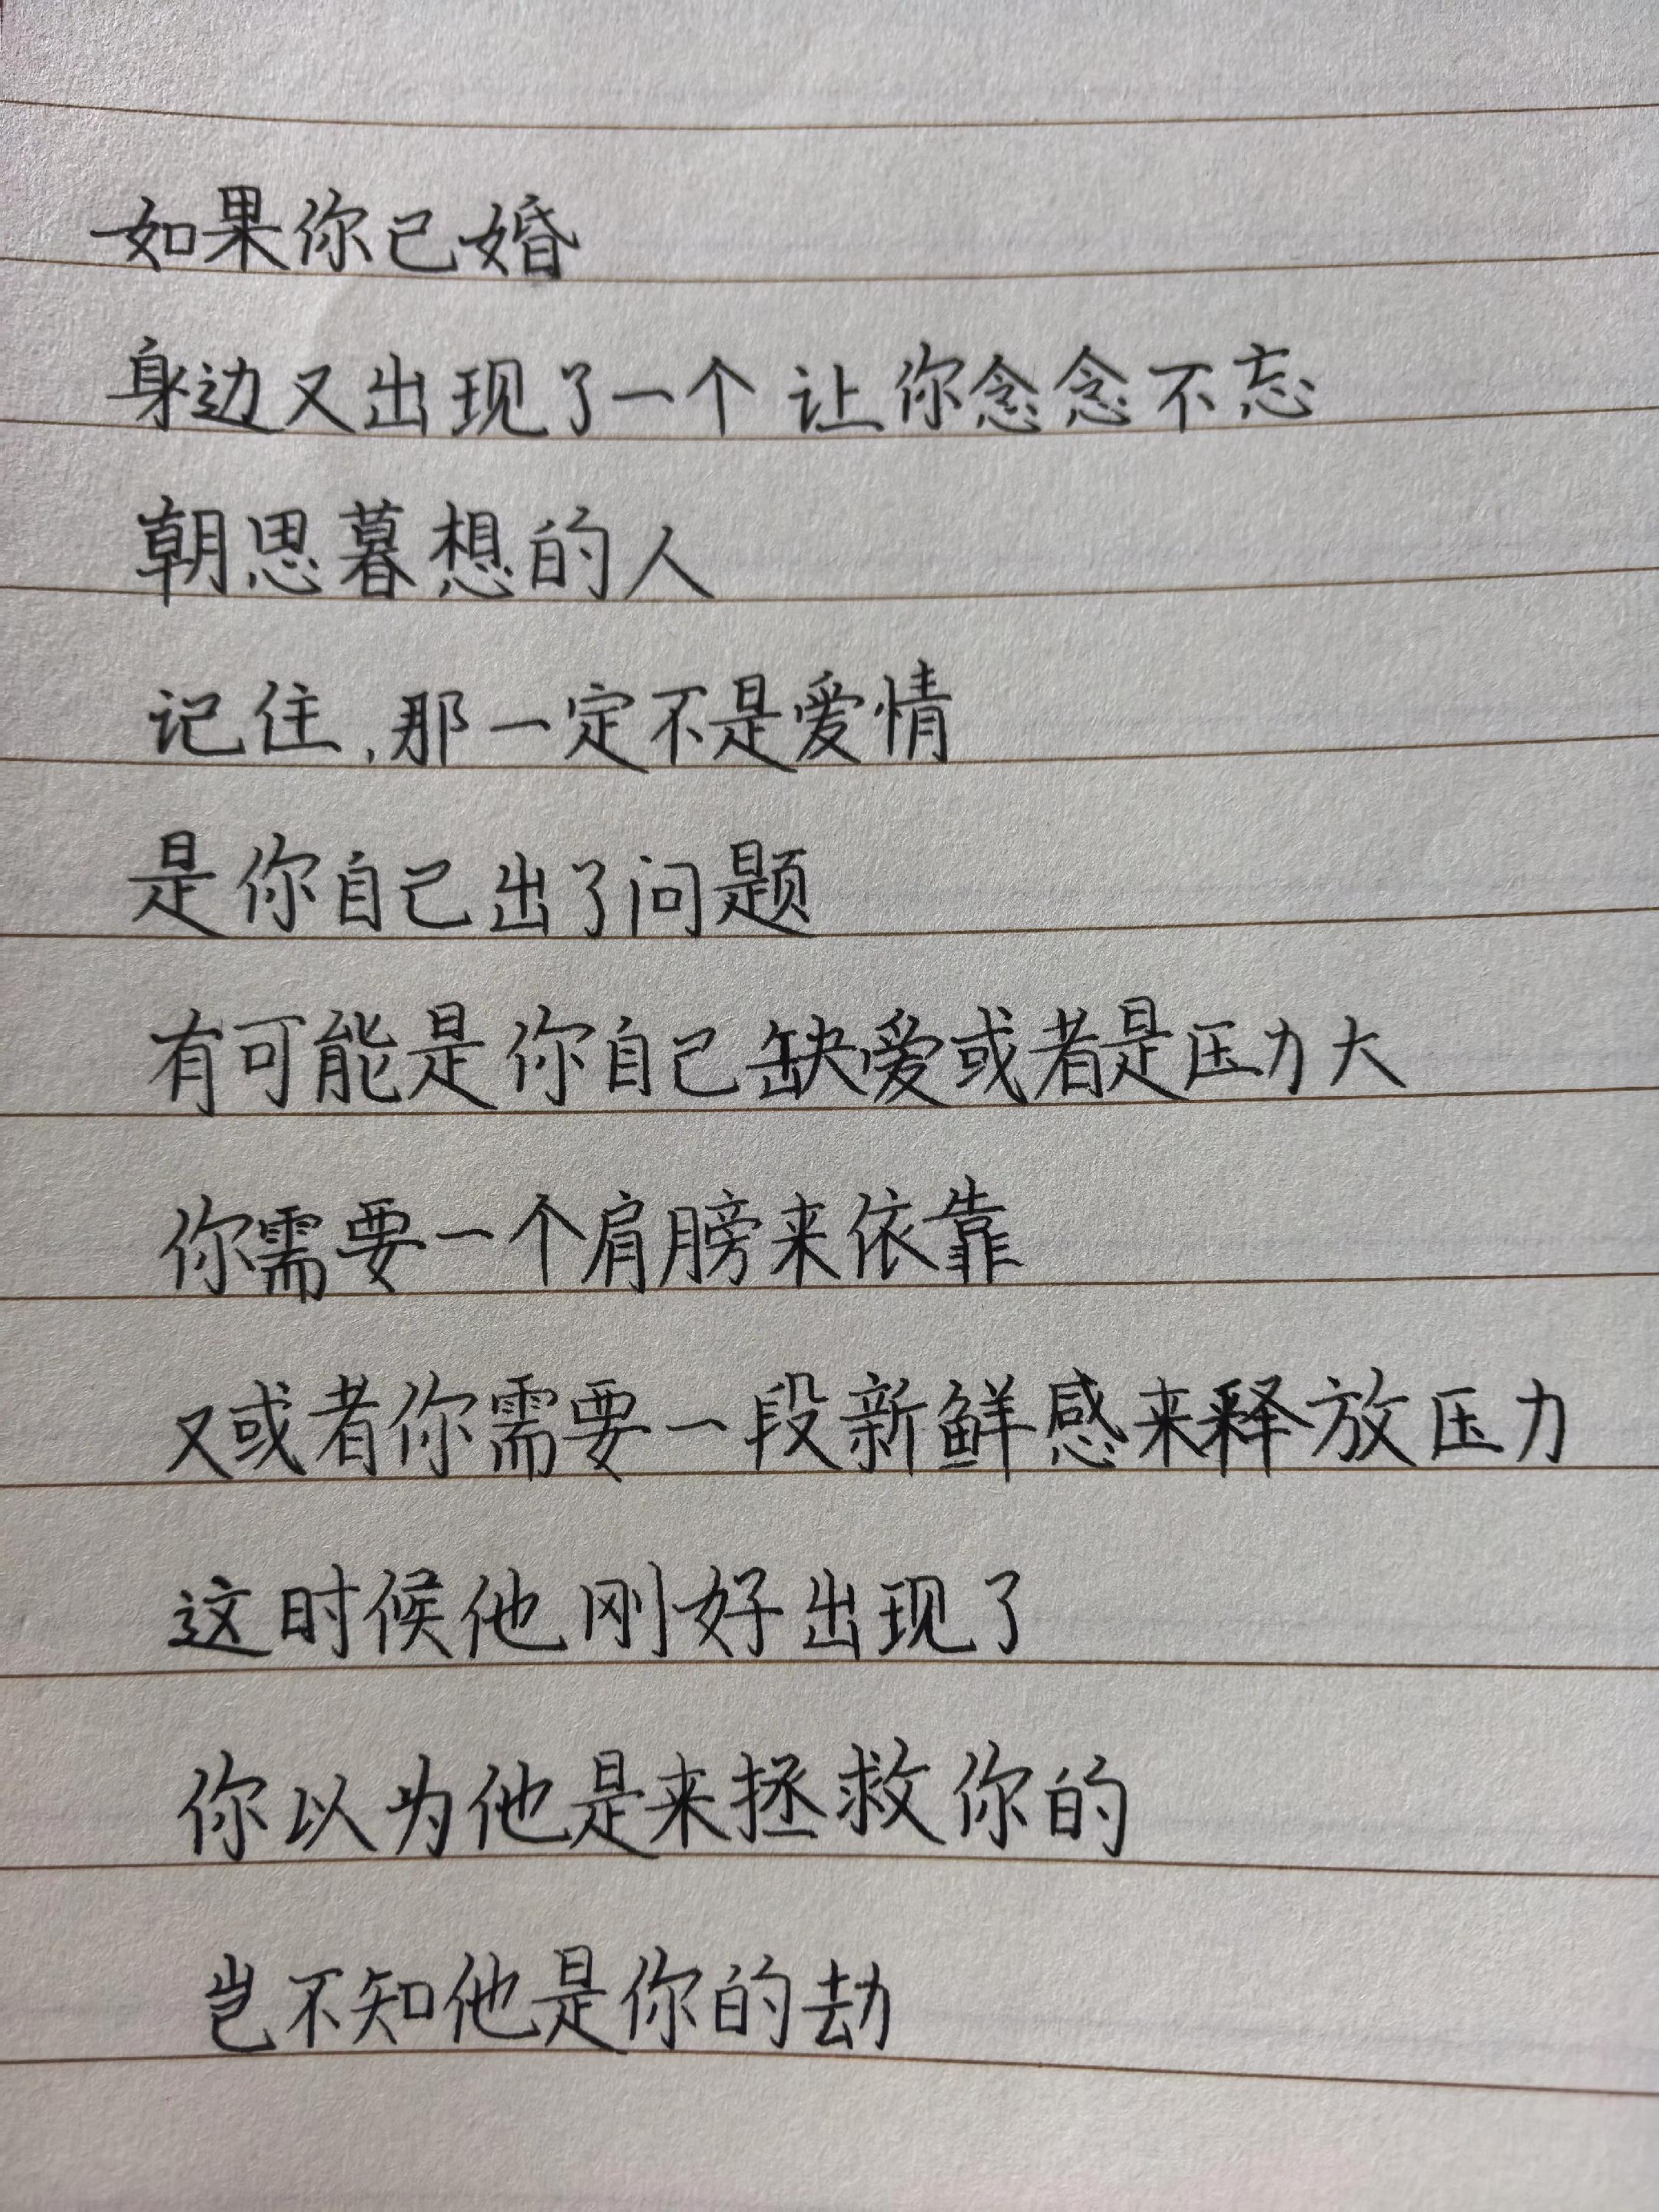 如果你已婚
身边又出现了一个让你念念不忘
朝思暮想的人
记住,那一定不是爱情
是你自己出了问题
有可能是你自己缺爱或者是压力大
你需要一个肩膀来依靠
又或者你需要一段新鲜感来释放压力
这时候他刚好出现了
你以为他是来拯救你的
岂不知他是你的劫